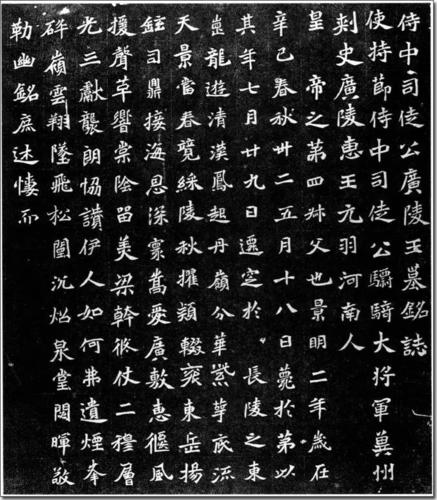 侍中司徒公廣陵王墓銘誌
使持節侍中司徒公驃騎大將軍冀州
刺史廣陵惠王元羽河南人
皇帝之第四叔父也景明二年歲在
辛巳春秋卅二五月十八日薨於第以
其年七月廿九日遷窆於長陵之東
崗龍遊清漢鳳起丹嶺分華紫萼底流
天景當春竸綵陵秋擢穎輟袞東岳揚
鉉司鼎接海恩深褰嵩愛廣敷惠偃風
援聲草響棠陰留美梁幹攸仗二穆層
光三獻襲朗協讚伊人如何弗遺煙峯
碎嶺雲翔墜飛松闈沉炤泉堂閟暉敬
勒幽銘庶述悽而